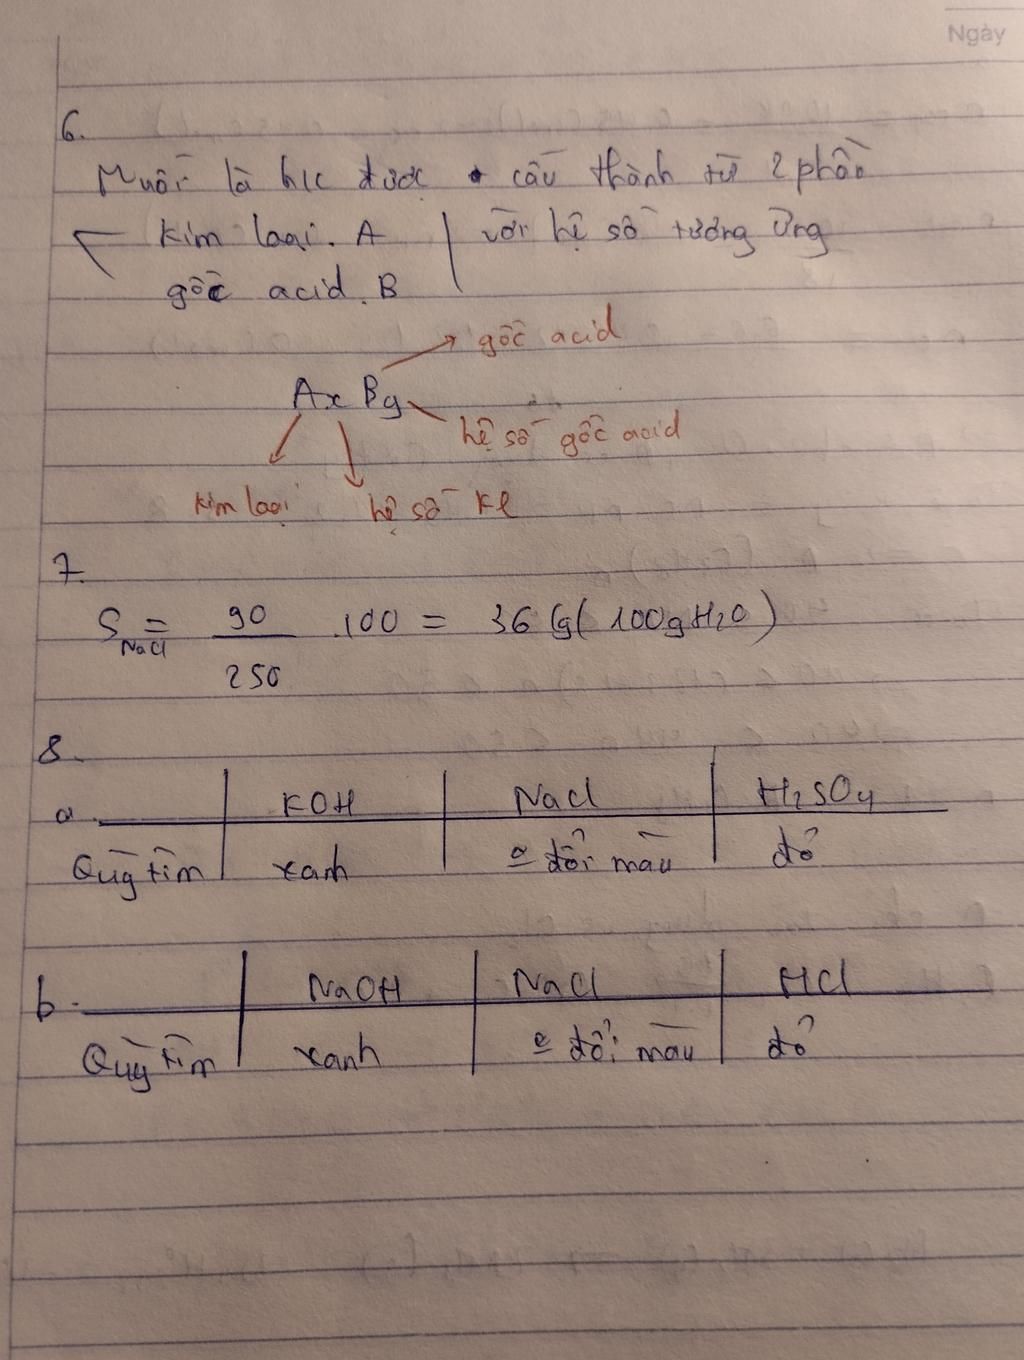 Ngày
6.
Muối là h/c được cấu thành từ 2 phần
kim loại. A | với hệ số tương ứng
gốc acid. B
gốc acid
Ax By
hệ số gốc acid
kim loại hệ số Kl
7.
S NaCl = 90/250 .100 = 36 (g/ 100g H2O)
8.
a. KOH | NaCl | H2SO4
Quỳ tím | xanh | đổi màu | đỏ
b. NaOH | NaCl | HCl
Quỳ tím | xanh | đổi màu | đỏ